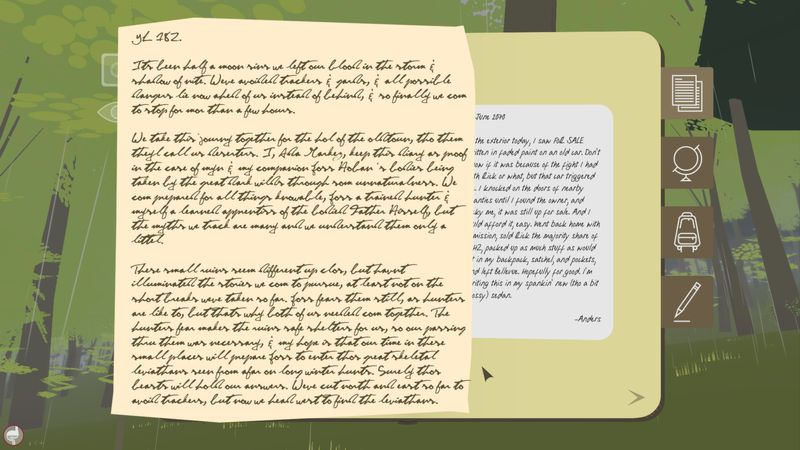 Its been half a moon sins we left our blood in the storm &
shadow of nite. Weve avoided trackers & gards, & all possible
dangers lie now ahed of us instead of behind, & so finally we com
to stop for mor than a few hours.
We take this journy together for the hol of the, tho them
theyl call us deserters. I, Ada, keep this diary as proof
in the case of myn & my companion bodies being
taken by the great dark wilds through som unnaturalness. We
com prepared for all things knowable, a trained hunter &
myself a learned of the Father, but
the myths we track are many and we understand them only a
littel.
These small ruins seem different up clos, but havnt
illuminated the stories we com to pursue, at least not on the
short breaks weve taken so far. fears them still, as hunters
are like to, but thats why both of us needed com together. The
hunters fear makes the ruins safe shelters for us, so our passing
thru them was necessary, & my hope is that our time in these
small places will prepare to enter thos great skeletal
leviathans seen from afar on long winter hunts. Surely thos
beasts will hold our answers. Weve cut north and east so far to
avoid trackers, but now we head west to find the leviathans.
June
the exterior today, I saw FOR SALE
itten in faded paint on an old car. Don't
ow if it was because of the fight I had
ith Rick or what, but that car triggered
. I knocked on the doors of nearby
anties until I found the owner, and
cky me, it was still up for sale. And I
uld afford it, easy. Went back home with
mission, sold Rick the majority share of
packed up as much stuff as would
t in my backpack, satchel, and pockets,
nd left Bellevue. Hopefully for good. I'm
riting this in my spankin' new (tho a bit
ossy) sedan.
-Anders